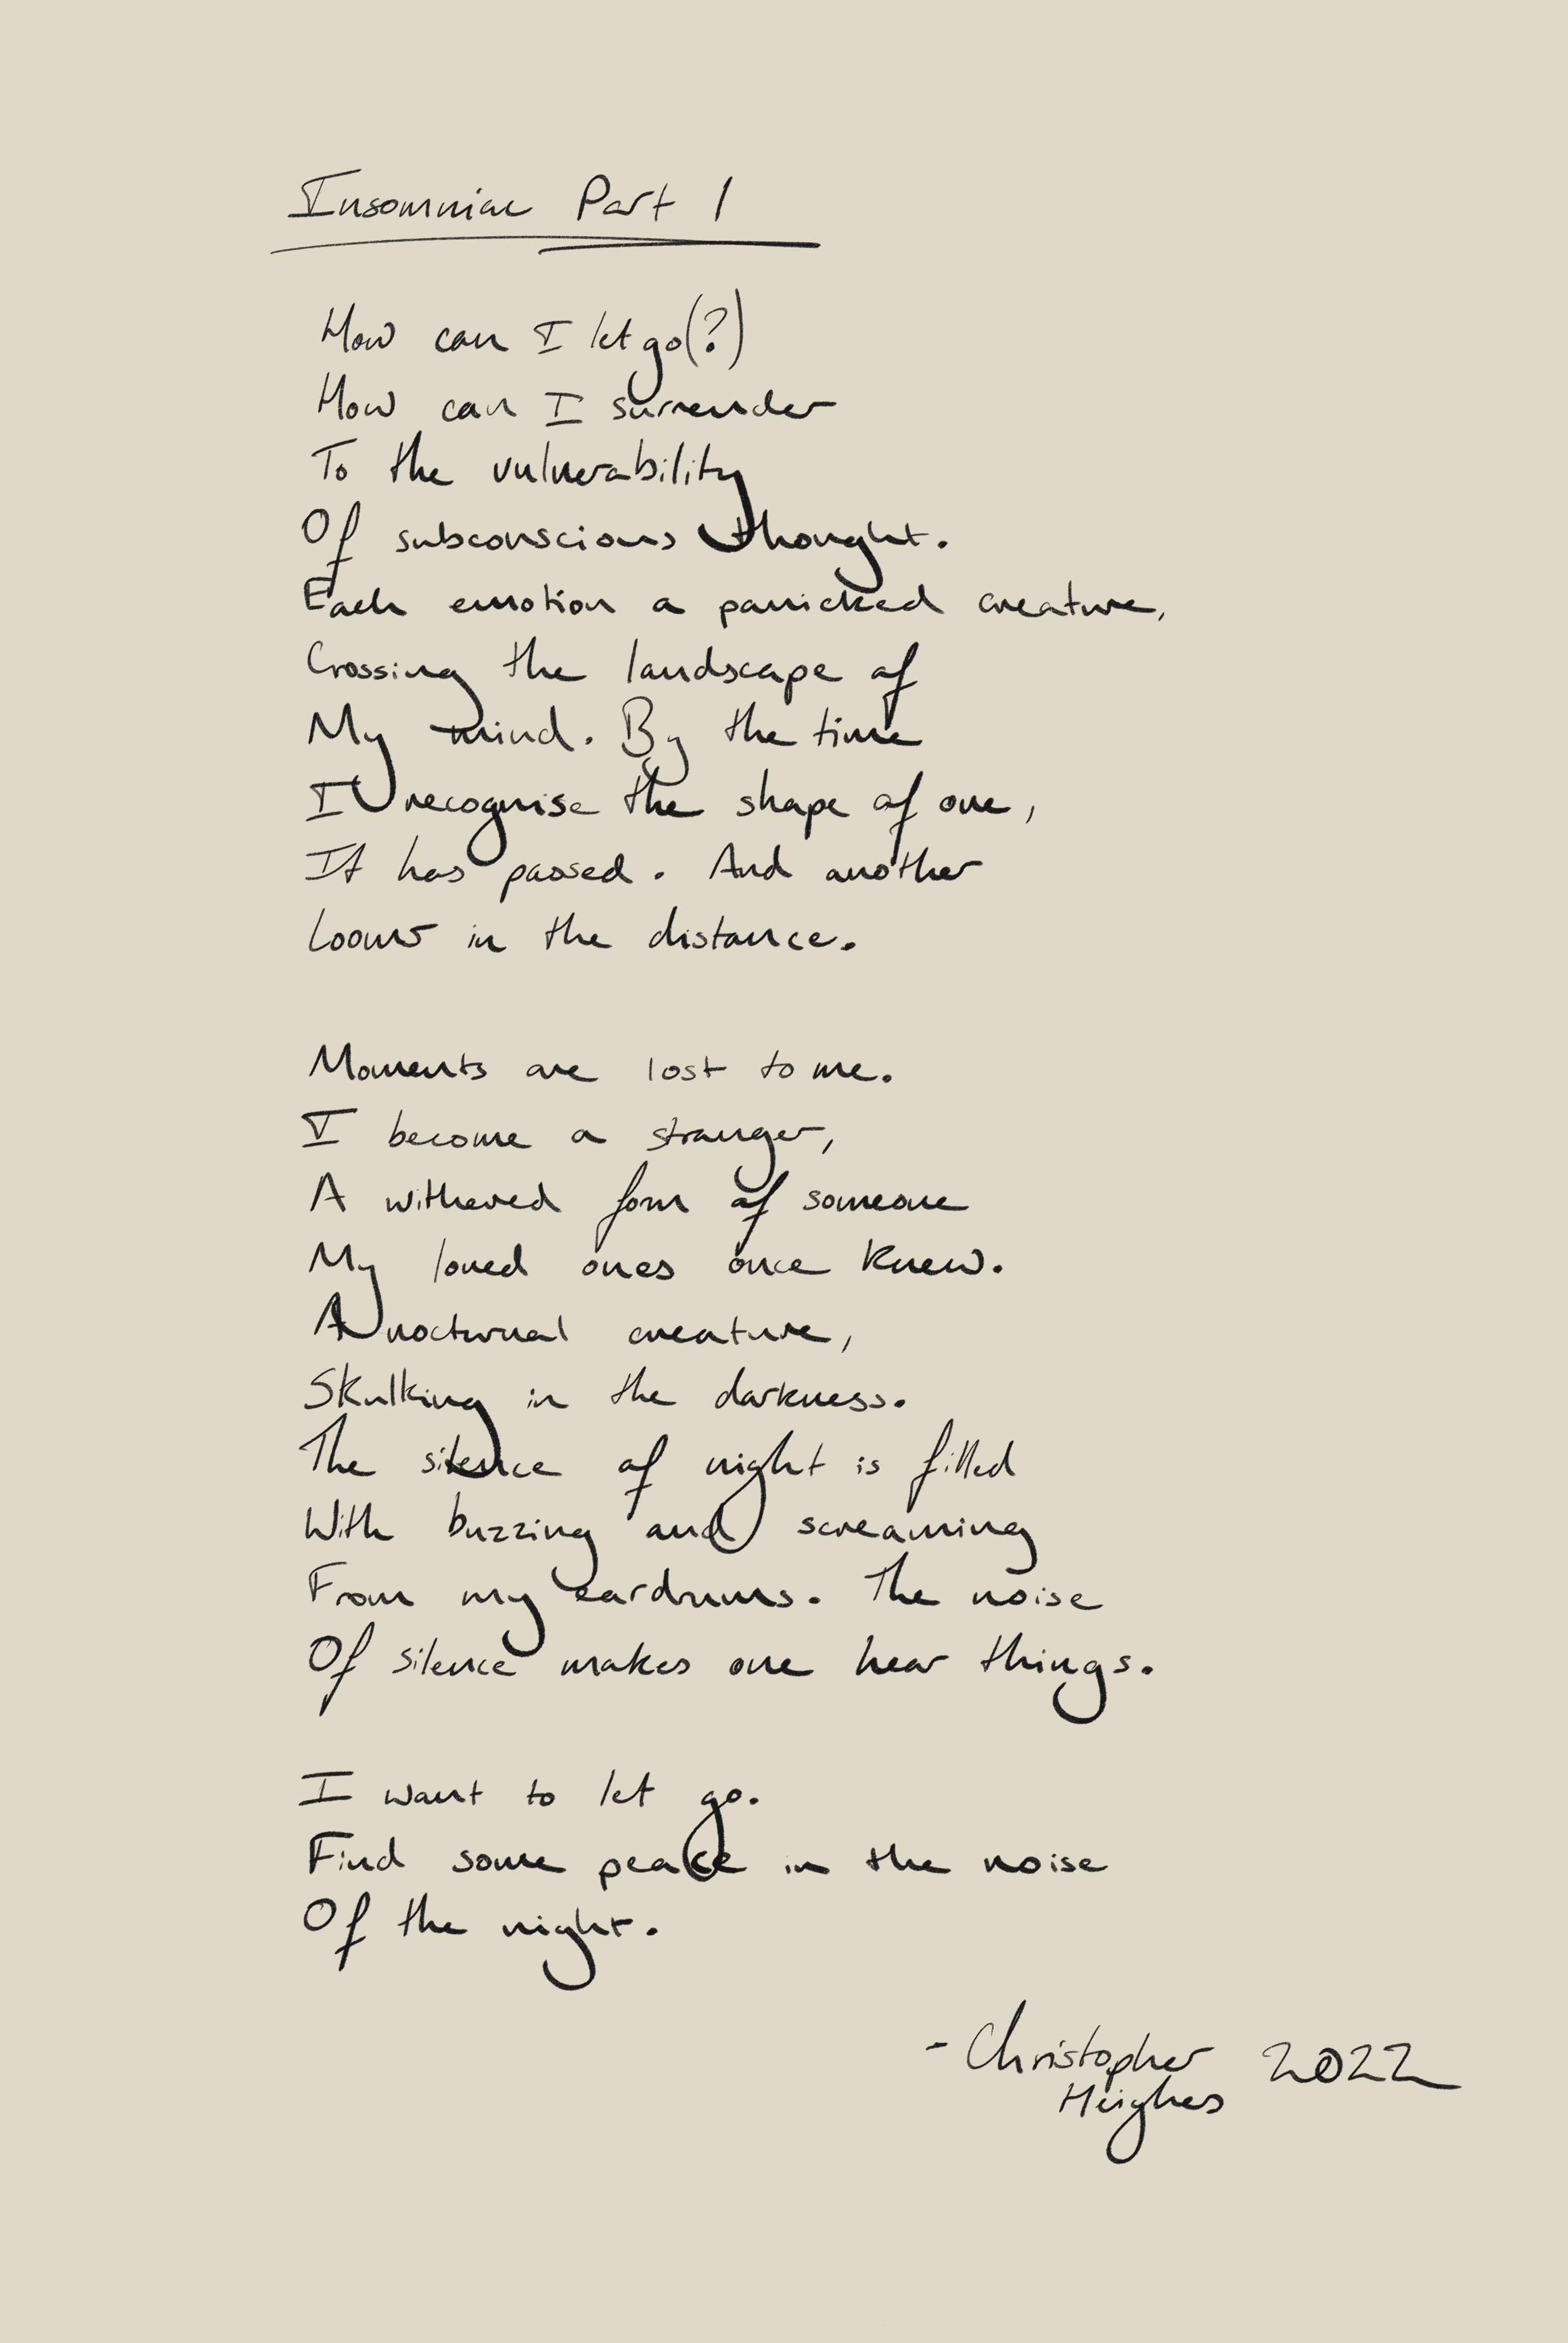 Insomniac Part 1
How can I let go(?)
How can I surrender
To the vulnerability
Of subconscious thought.
Each emotion a panicked creature,
Crossing the landscape of
My mind. By the time
I recognise the shape of one,
It has passed. And another
Looms in the distance.
Moments are lost to me.
I become a stranger,
A withered form of someone
My loved ones once knew.
A nocturnal creature,
Skulking in the darkness.
The silence of night is filled
With buzzing and screaming
From my eardrums. The noise
Of silence makes one hear things.
I want to let go.
Find some peace in the noise
Of the night.
- Christopher 2022
Heighes